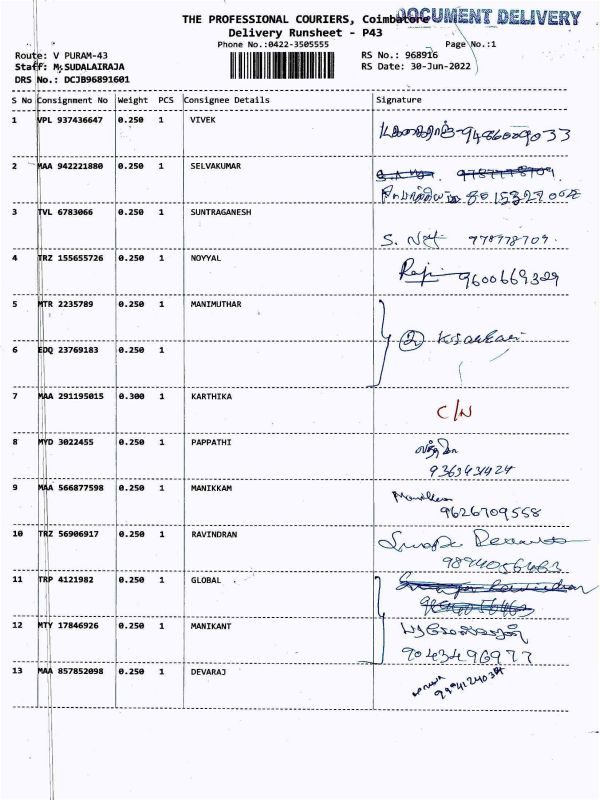 THE PROFESSIONAL COURIERS, Coimbatore
DOCUMENT DELIVERY
Delivery Runsheet - P43
Phone No.:0422-3505555 Page No.:1
Route: V PURAM-43 RS No.: 968916
Staff: M.SUDALAIRAJA RS Date: 30-Jun-2022
DRS No.: DCJB96891601
S No Consignment No Weight PCS Consignee Details Signature
1 VPL 937436647 0.250 1 VIVEK
2 MAA 942221880 0.250 1 SELVAKUMAR
3 TVL 6783066 0.250 1 SUNTRAGANESH
S. 978778709.
4 TRZ 155655726 0.250 1 NOYYAL
9600669329
5 MTR 2235789 0.250 1 MANIMUTHAR
2
6 EDQ 23769183 0.250 1
7 MAA 291195015 0.300 1 KARTHIKA
C/N
8 MYD 3022455 0.250 1 PAPPATHI
9363431424
9 MAA 566877598 0.250 1 MANIKKAM
9626709558
10 TRZ 56906917 0.250 1 RAVINDRAN
11 TRP 4121982 0.250 1 GLOBAL
12 MTY 17846926 0.250 1 MANIKANT
9043496977
13 MAA 857852098 0.250 1 DEVARAJ